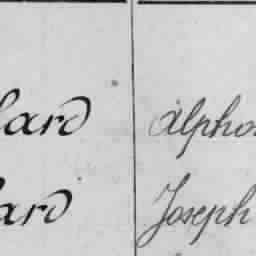 lard Alpho
ard Joseph